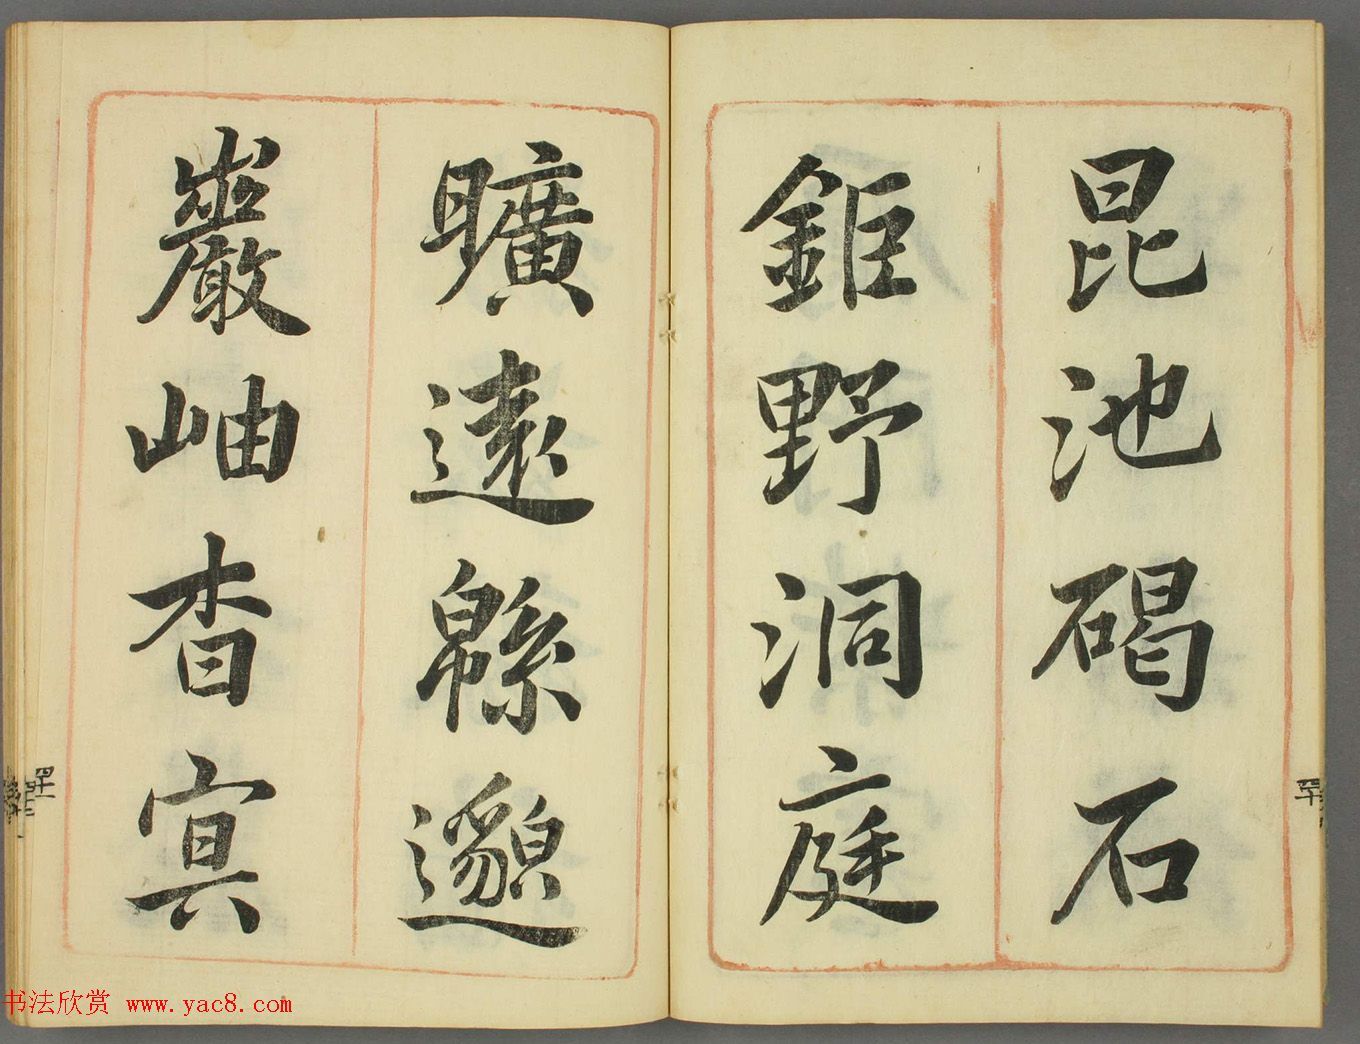 昆池碣石
鉅野洞庭
曠遠緜邈
巖岫杳冥
四十
四十一
书法欣赏 www.yac8.com